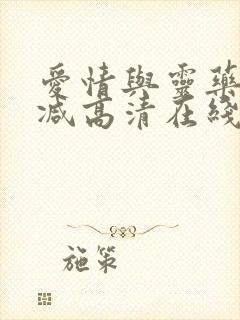 愛情與靈藥
減高清在綫
施策